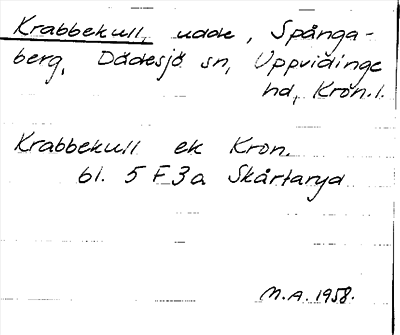 Krabbekull, udde, Spånga-
berg, Dädesjö sn, Uppvidinge
hd, Kron.l.
Krabbekull ek Kron.
bl. 5 F 3a Skårtaryd
M.A. 1958.